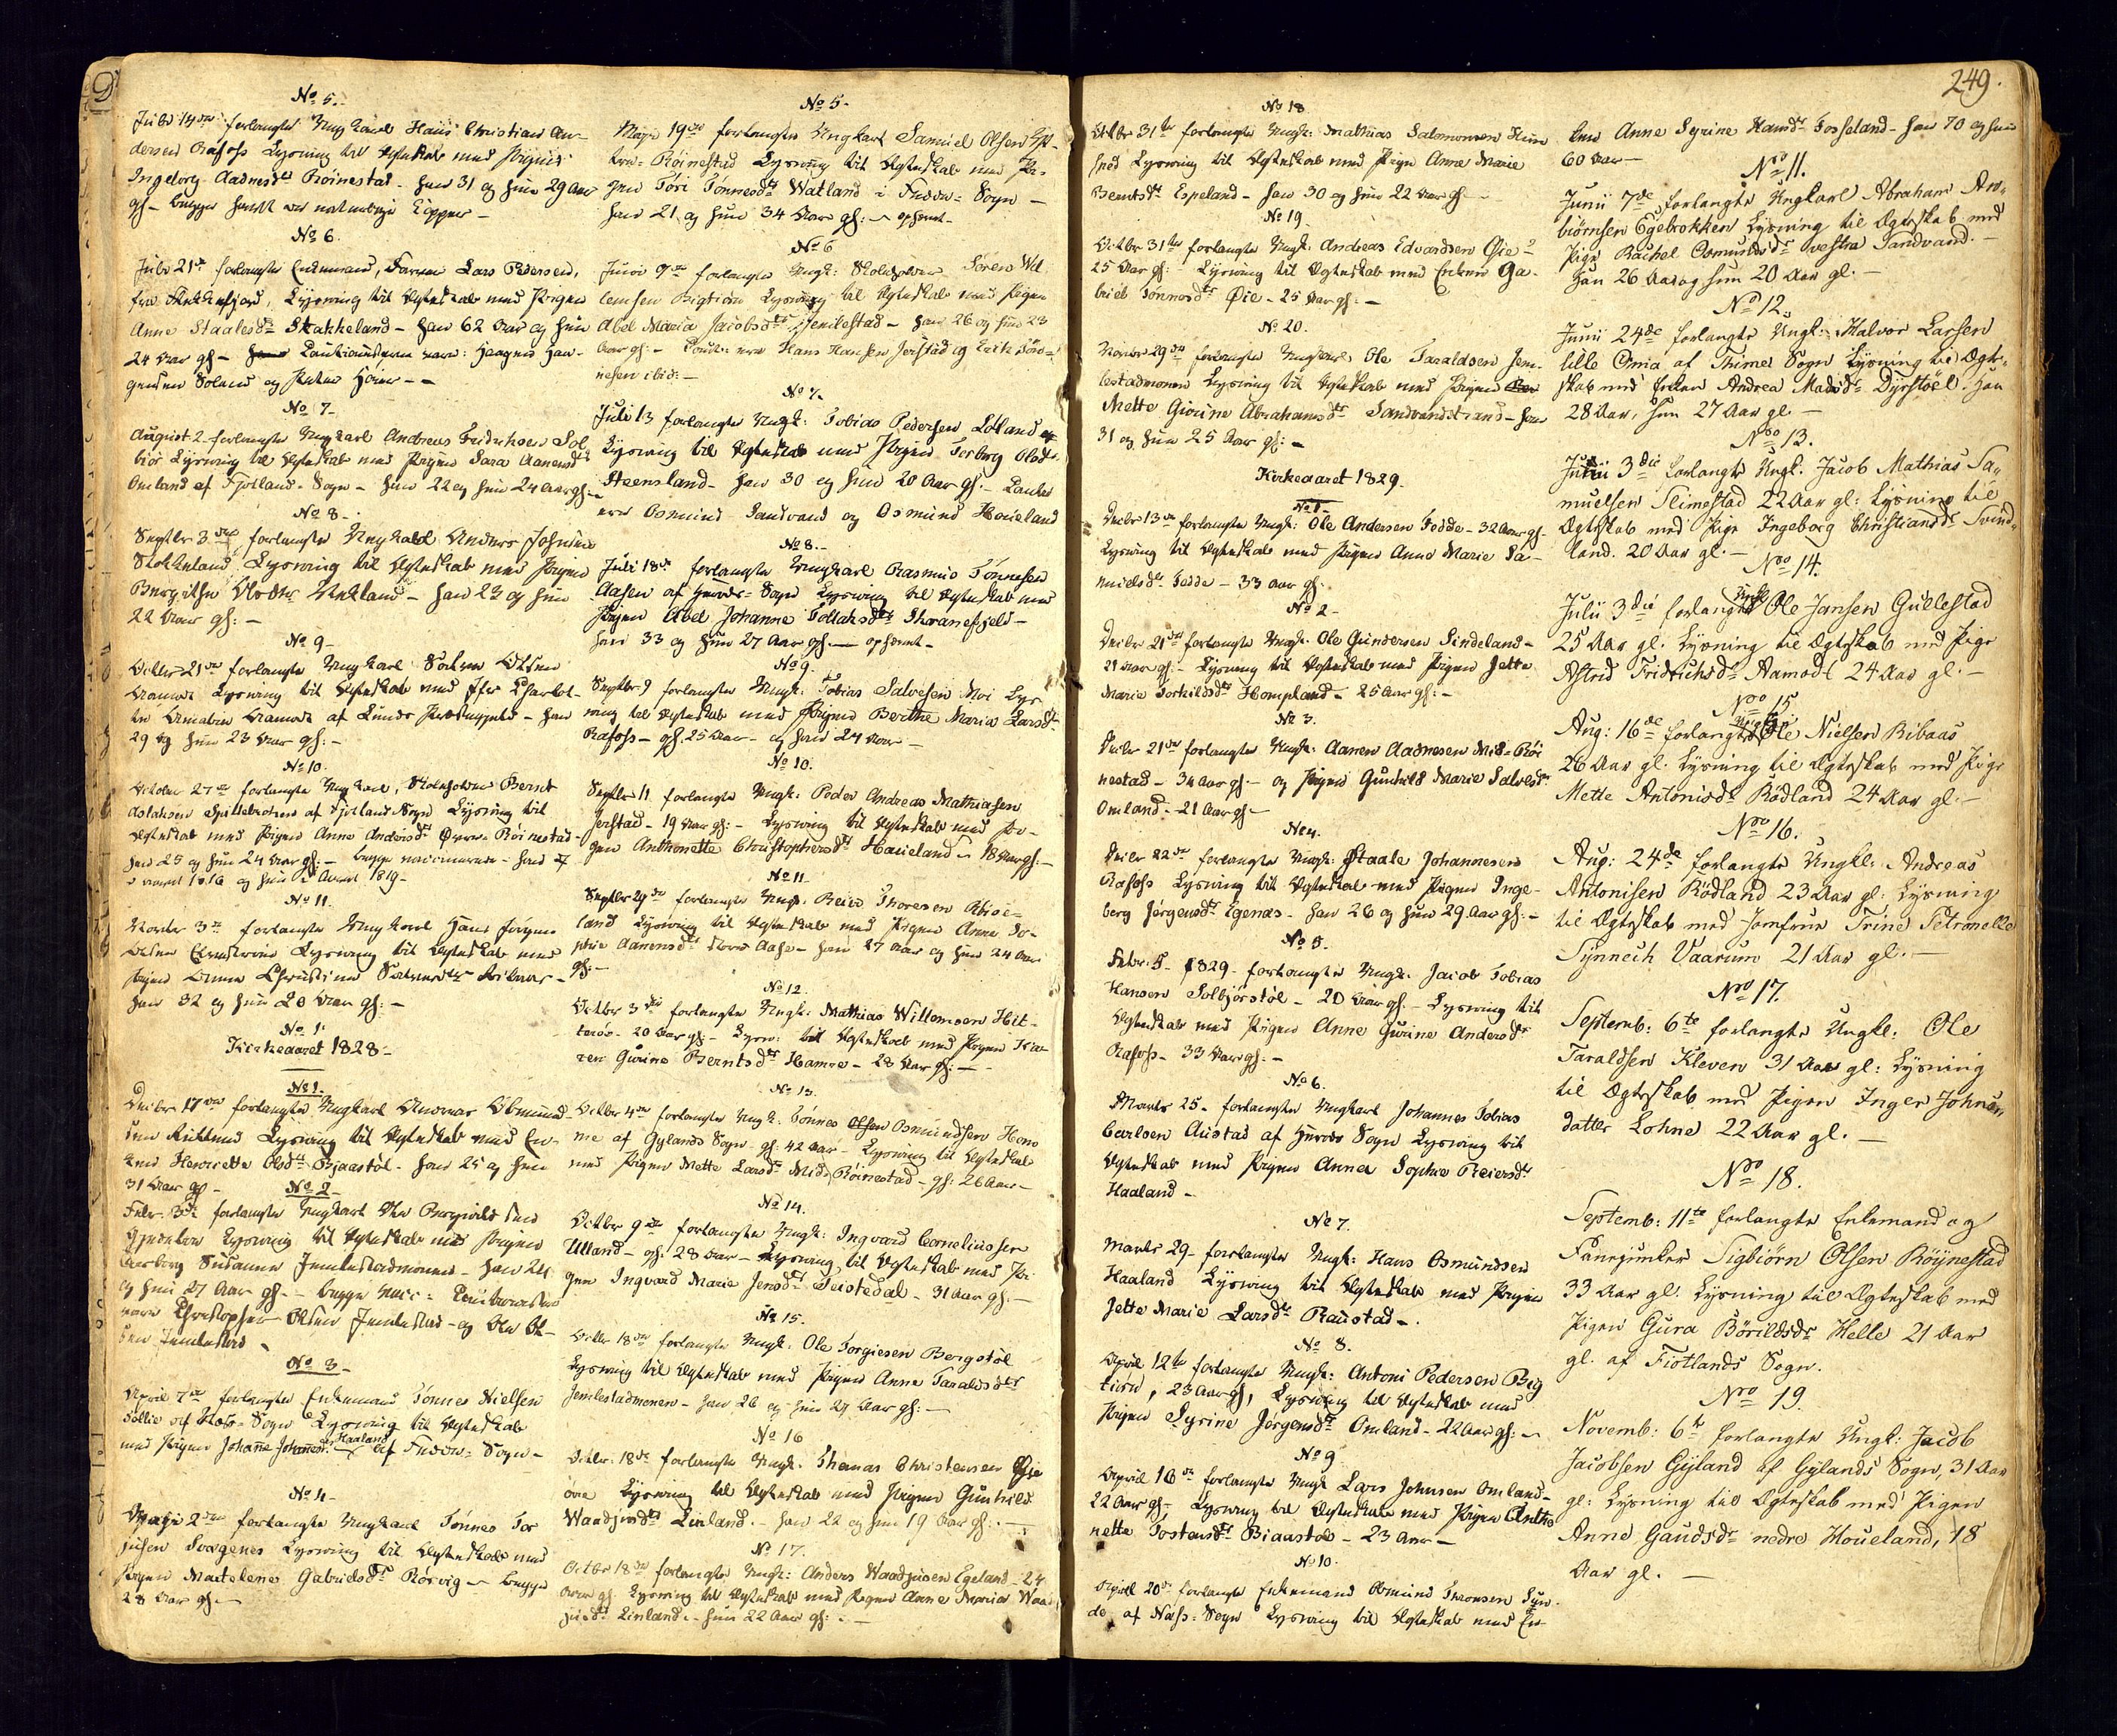 249.
No 5.
Julii 14de forlangte Ungkarl Hans Christian An-
dersen Rafoss Lysning til Ægteskab med Pigen
Ingeborg Aadnesdtr Röinestad - han 31 og hun 29 Aar
gl - begge havt de naturlige Kopper -
No 6.
Julii 21de forlangte Enkemand, Farver Lars Pedersen,
fra Flekkefjord, Lysning til Ægteskab med Pigen
Anne Staalesdr Stakkeland - han 62 Aar og hun
24 Aar gl -
gensen Soland og Peter
No 7-
August 2 forlangte Ungkarl Andreas Fridrichsen Sol-
biör Lysning til Ægteskab med Pigen Sara Aanensdtr
Omland af Fjotland-Sogn - han 22 og hun 24 Aar gl:
No 8-
Septbr 3die forlangte Ungkarl Anders Johnsen
Stokkeland Lysning til Ægteskab med Pigen
Olsdtr - han 23 og hun
22 Aar gl: -
No 9-
Octbr 21de forlangte Ungkarl Olsen
Lysning til Ægteskab med Jfr Charlot-
te Amalia af Lunds Præstegjeld - han
29 og hun 23 Aar gl: -
No 10.
October 27de forlangte Ungkarl, Skoleholder Bernt
Aslaksen af Fjotland Sogn Lysning til
Ægteskab med Pigen Anne Andersdtr Øvre-Röinestad-
han 25 og hun 24 Aar gl: - begge vaccinerede - han
1816 og hun 1819-
No 11.
3die forlangte Ungkarl Hans Jörgen
Olsen Lysning til Ægteskab med
Pigen Anne Christine
han 32 og hun 28 Aar gl: -
No 1.
Kirkeaaret 1828-
No 1.
Decbr 17de forlangte Ungkarl Gunvar Osmund-
sen Lysning til Ægteskab med En-
ken Henriette Olsdtr Bjaastöl - han 25 og hun
31 Aar gl -
No 2-
Febr. 3die forlangte Ungkarl Ole
Lysning til Ægteskab med Pigen
Susanne Jemlestadmonen - han 24
og hun 27 Aar gl -
vare Christopher Olsen Jemlestad - og Ole Ol-
sen Jemlestad -
No 3-
April 7de forlangte Enkemand Tönnes Nielsen
af Næs-Sogn Lysning til Ægteskab
Haaland
med Pigen Johanne Johannesdr af Sogn -
No 4-
Maji 2den forlangte Ungkarl Tönnes Tor-
jusen Svægenes Lysning til Ægteskab med
Pigen Madelene Gabrielsdtr Rörvig - begge
28 Aar gl -
No 5-
Maji 19de forlangte Ungkarl Samuel Olsen
Röinestad Lysning til Ægteskab med Pi-
gen Töri Tönnesdtr Watland i Sogn -
han 21 og hun 34 Aar gl: - ophævet -
No 6
Junii 9de forlangte Ungk: Skoleholder Sören Wil-
lemsen Bigtiörn Lysning til Ægteskab med Pigen
Abel Maria Jacobsdtr Jemlestad - han 26 og hun 23
Aar gl: - Caut: ere Hans Hansen Jerstad og Erik
ibid: -
No 7.
Julii 13 forlangte Ungk: Tobias Pedersen Lölland
Lysning til Ægteskab med Pigen Torborg Olsdtr
Steensland - han 30 og hun 20 Aar gl: - Cauter
ere Osmund Sandvand og Osmund Houeland
No 8.-
Julii 18de forlangte Ungkarl Rasmus Tönnesen
Aasen af Sogn Lysning til Ægteskab med
Pigen Abel Johanne Tollaksdtr Thranefjeld -
han 33 og hun 27 Aar gl - ophævet -
No 9
Septbr 9 forlangte Ungk: Tobias Salvesen Moi Lys-
ning til Ægteskab med Pigen Berthe Maria Larsdtr
Rafoss - gl. 25 Aar - og han 24 Aar -
No 10.
Septbr 11 forlangte Ungk: Peder Andreas Mathiasen
Jerstad - 19 Aar gl: - Lysning til Ægteskab med Pi-
gen Anthonette Christophersdtr Haueland - 18 Aar gl: -
No 11
Septbr 29de forlangte Ungk: Reier Thoresen
land Lysning til Ægteskab med Pigen Anne So-
phie Aanensdtr Aase - han 27 Aar og hun 24 Aar
gl: -
No 12
Octbr 3die forlangte Ungk: Mathias Willomsen Hit-
teröe - 20 Aar gl: - Lysn: til Ægteskab med Pigen Ka-
ren Gurine Berntsdtr Hamre - 28 Aar gl: -
No 13.
Octbr 4de forlangte Ungk: Tönnes Osmundsen Hom-
me af Gylands Sogn - gl: 42 Aar - Lysning til Ægteskab
med Pigen Mette Larsdtr Mid-Röinestad - gl: 26 Aar -
No 14.
Octbr 9de forlangte Ungk: Ingvard Corneliussen
Ulland - gl: 28 Aar - Lysning til Ægteskab med Pi-
gen Ingvard Marie Jensdtr Seistedal - 31 Aar gl: -
No 15.
Octbr 18de forlangte Ungk: Ole Torgiesen Bergstöl
Lysning til Ægteskab med Pigen Anne Taraldsdtr
Jemlestadmonen - han 26 og hun 29 Aar gl: -
No 16
Octbr: 18de forlangte Ungk: Thomas Christensen
Lysning til Ægteskab med Pigen Gunhild
Waadjusdtr Linland. - han 22 og hun 19 Aar gl: -
No 17.
Octbr 18de forlangte Ungk: Anders Waadjusen Egeland - 24
Aar gl: Lysning til Ægteskab med Pigen Anne Maria Waad-
jusdtr Linland. - hun 22 Aar gl: -
No 18
Octbr 31te forlangte Ungk: Mathias Salomonsen
Lysning til Ægteskab med Pigen Anne Marie
Berntsdtr Espeland - han 30 og hun 22 Aar gl -
No 19
Octbr 31te forlangte Ungk: Andreas Edvardsen Øie -
25 Aar gl: - Lysning til Ægteskab med Enken Ga-
briele Tönnesdtr Øie - 25 Aar gl: -
No 20.
29de forlangte Ungkarl Ole Taraldsen Jem-
lestadmonen Lysning til Ægteskab med Pigen
Mette Giurine Abrahamsdtr Sandvandstrand - han
31 og hun 25 Aar gl: -
Kirkeaaret 1829-
No 1-
Decbr 13de forlangte Ungk: Ole Andersen Fodde - 32 Aar gl -
Lysning til Ægteskab med Pigen Anne Marie Sa-
muelsdtr Fodde - 33 Aar gl.
No 2-
Decbr 21de forlangte Ungk: Ole Gundersen Sindeland -
21 Aar gl: - Lysning til Ægteskab med Pigen Jette
Marie Torkildsdtr Hompland - 25 Aar gl: -
No 3.
Decbr 21de forlangte Ungk: Aanen Aadnesen Mid-Röi-
nestad - 34 Aar gl - og Pigen Gunhild Marie Salvesdtr
Omland - 21 Aar gl -
No 4.
Decbr 22de forlangte Ungk: Staale Johannesen
Rafoss Lysning til Ægteskab med Pigen Inge-
borg Jörgensdtr Egenæs - han 26 og hun 29 Aar gl: -
No 5.
Febr: 5 - 1829 - forlangte Ungk: Jacob Tobias
Hansen Solbjörstöl - 20 Aar gl - Lysning til
Ægteskab med Pigen Anne Gurine Andersdtr
Rafoss - 33 Aar gl: -
No 6.
Marts 25 - forlangte Ungkarl Johannes Tobias
Carlsen Austad af Sogn Lysning til
Ægteskab med Pigen Anna Sophie Reiersdtr
Haaland -
No 7.
Marts 29 - forlangte Ungk: Hans Osmundsen
Haaland Lysning til Ægteskab med Pigen
Jette Marie Larsdtr Raustad -
No 8.
April 12te forlangte Ungk: Antoni Pedersen Big-
tiörn, 23 Aar gl, Lysning til Ægteskab med
Pigen Syrine Jörgensdtr Omland - 22 Aar gl: -
No 9
April 16de forlangte Ungk Lars Johnsen Omland -
22 Aar gl - Lysning til Ægteskab med Pigen Antho-
nette Tostensdtr Biaastöl - 23 Aar -
No 10.
April 20de forlangte Enkemand Osmund Thronsen
af Næss-Sogn Lysning til Ægteskab med En-
ken Anne Syrine Hansdtr Fosseland - han 70 og hun
60 Aar -
No 11.
Junii 7de forlangte Ungkarl Abraham Arn-
biørnsen Egebrokken Lysning til Ægteskab med
Pige Rachel Osmundsdr vestra Sandvand. -
Han 26 Aar og hun 20 Aar gl. -
No 12.
Junii 24de forlangte Ungk: Halvor Larsen
lille Omia af Thime Sogn Lysning til Ægte-
skab med Enken Andrea Madsdr Dyrstöel. Han
28 Aar, hun 27 Aar gl. -
No 13.
Julii 3die forlangte Ungk. Jacob Mathias Sa-
muelsen Slimestad 22 Aar gl: Lysning til
Ægteskab med Pige Ingeborg Christiansdr Svind-
land. 20 Aar gl. -
No 14.
Julii 3die forlangte Ungk. Ole Jansen Gullestad
25 Aar gl. Lysning til Ægteskab med Pige
Astrid Fridrichsdr Aamodt 24 Aar gl. -
No 15.
Aug: 16de forlangte Ungk. Ole Nielsen Ribaas
26 Aar gl. Lysning til Ægteskab med Pige
Mette Antonisdr Rödland 24 Aar gl. -
No 16.
Aug: 24de forlangte Ungkl: Andreas
Antonisen Rödland 23 Aar gl: Lysning
til Ægteskab med Jomfrue Trine Petronelle
Synnech Vaarum 21 Aar gl. -
No 17.
Septemb: 6te forlangte Ungkl: Ole
Taraldsen Kleven 31 Aar gl: Lysning
til Ægteskab med Pigen Inger Johns
datter Lohne 22 Aar gl. -
No 18.
Septemb: 11te forlangte Enkemand og
Fanejunker Sigbiörn Olsen Röÿnestad
33 Aar gl: Lysning til Ægteskab med
Pigen Gura Börildsdr Helle 21 Aar
gl. af Fiotlands Sogn.
No 19.
Novemb: 6te forlangte Ungk: Jacob
Jacobsen Gÿland af Gÿlands Sogn, 31 Aar
gl: Lysning til Ægteskab med Pigen
Anne Gaudsdr nedre Houeland, 18
Aar gl. -